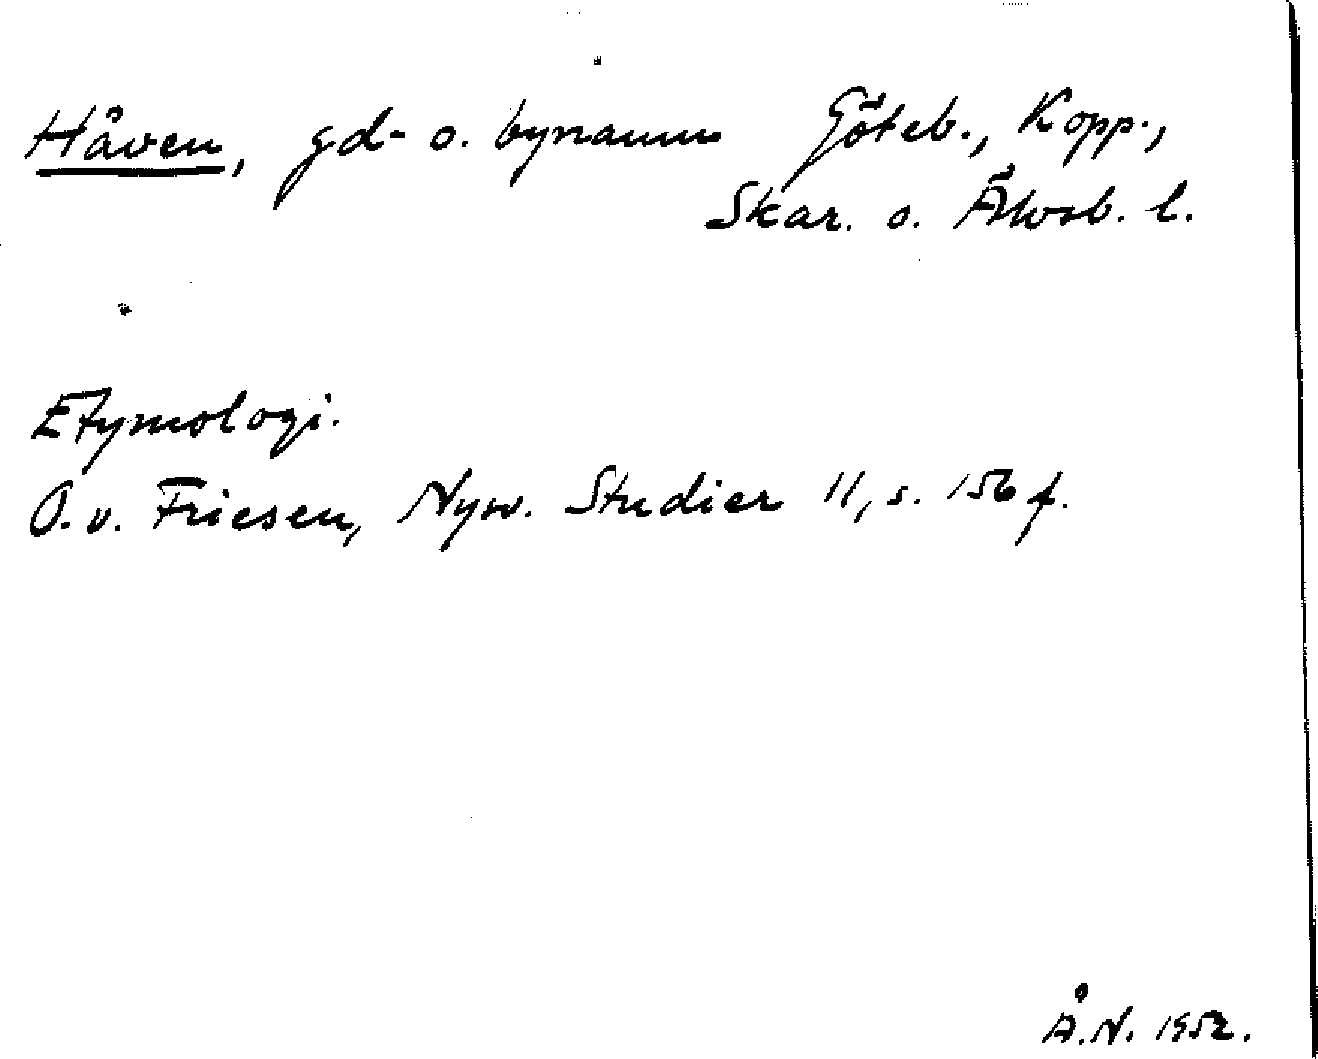 Håven, gd- o. bynamn Göteb., Kopp.,
Skar. o. Älvsb. l.
Etymologi.
O. v. Friesen, Nysv. Studier 11, s. 156 f.
Å. N. 1952.